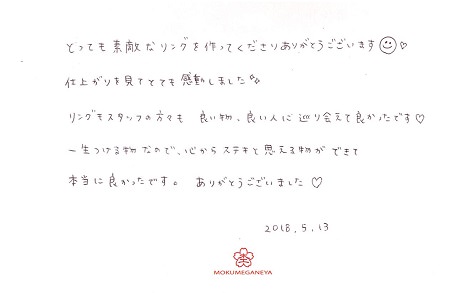 とっても素敵なリングを作ってくださりありがとうございます☺♡
仕上がりを見てとても感動しました
リングもスタッフの方々も 良い物、良い人に巡り会えて良かったです♡
一生つける物なので、心からステキと思える物ができて
本当に良かったです。 ありがとうございました♡
2018.5.13
MOKUMEGANEYA